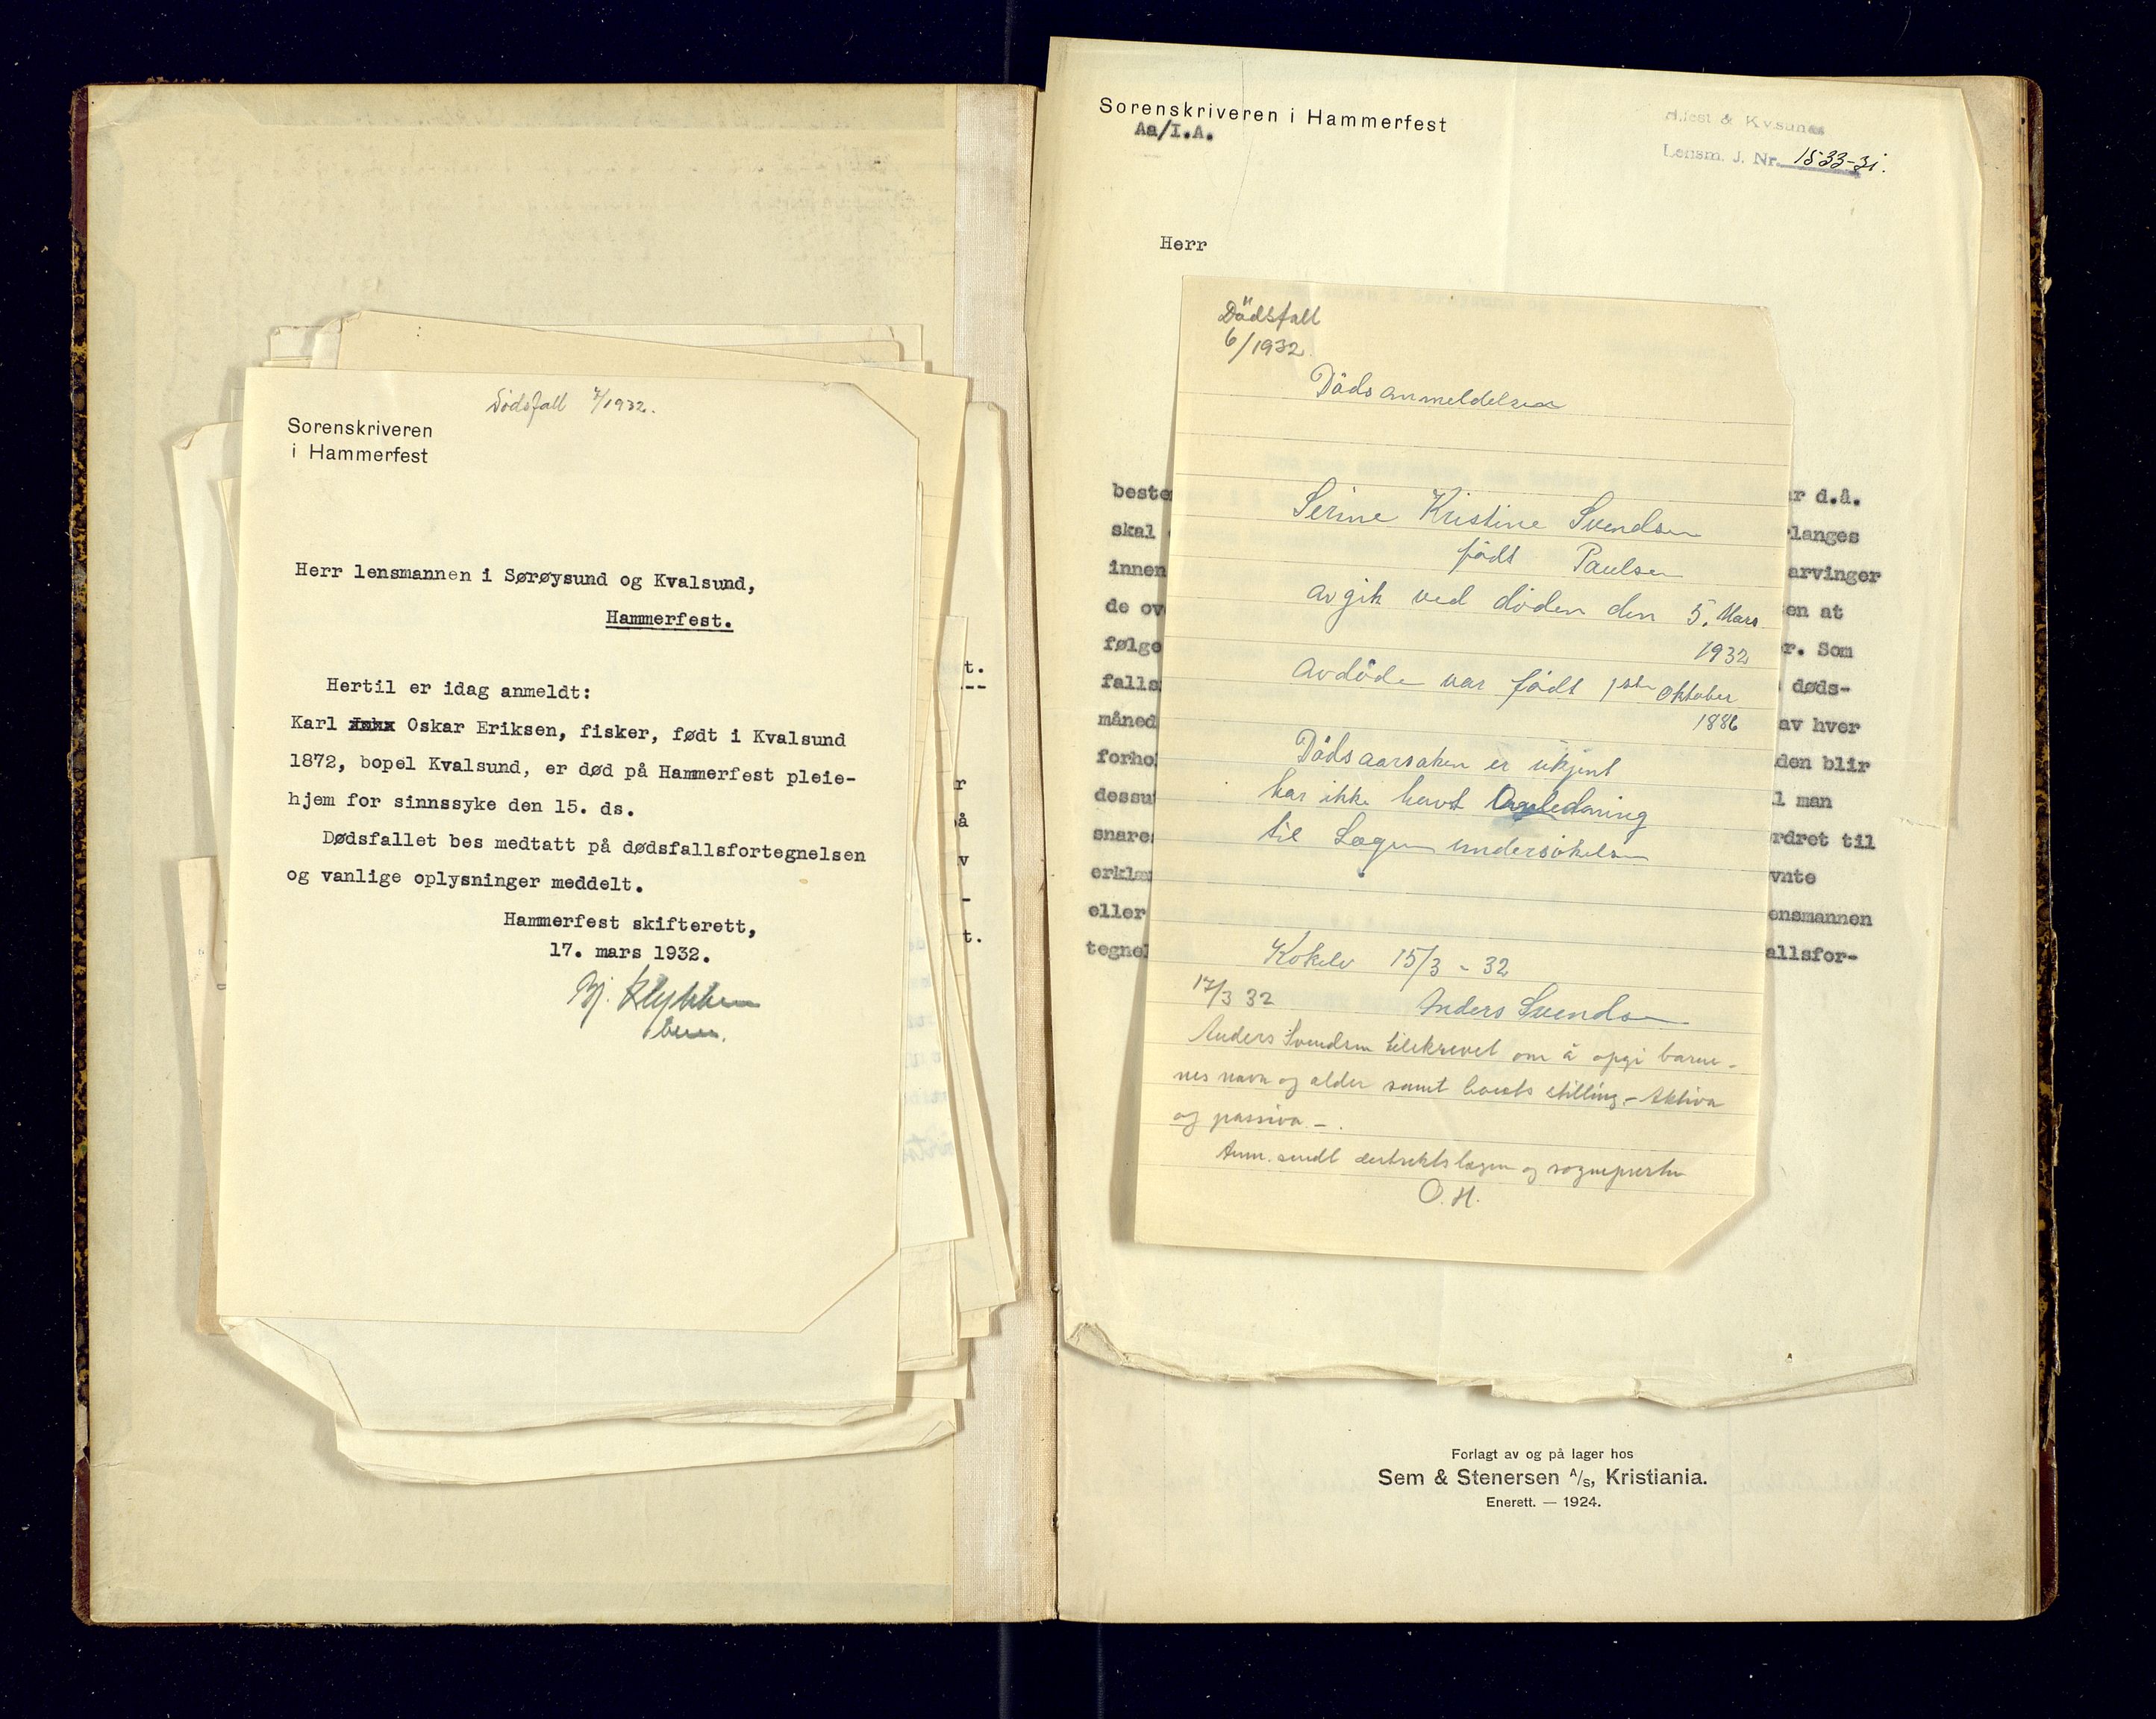 Dødsfall 7/1932.
Sorenskriveren
i Hammerfest
Herr lensmannen i Sørøysund og Kvalsund,
Hammerfest.
Hertil er idag anmeldt:
Karl Oskar Eriksen, fisker, født i Kvalsund
1872, bopel Kvalsund, er død på Hammerfest pleie-
hjem for sinnssyke den 15. ds.
Dødsfallet bes medtatt på dødsfallsfortegnelsen
og vanlige oplysninger meddelt.
Hammerfest skifterett,
17. mars 1932.
Sorenskriveren i Hammerfest
Aa/I.A.
H.fest & Kv.sunds
Lensm. J. Nr. 1533-31.
Herr
Dödsfall
6/1932.
Dödsanmeldelse
Serine Kristine Svendsen
födt Paulsen
avgik ved döden den 5. Mars
1932
avdöde var födt 1ste Oktober
1886
Dödsaarsaken er ukjent
har ikke havt
til Lægeundersökelsen
Kokelv 15/3 - 32
Anders Svendsen
17/3 32
Anders Svendsen tilskrevet om å opgi barne-
nes navn og alder samt boets stilling - Aktiva
og passiva. -
Anm. sendt distriktslægen og sognepresten
O.H.
beste
skal
innen
de ov
følge
falls
måned
forho
dessu
snare
erklæ
eller
tegnel
r d.å.
langes
arvinger
en at
r. Som
døds-
av hver
den blir
l man
rdret til
vnte
ensmannen
allsfor-
Forlagt av og på lager hos
Sem & Stenersen A/S, Kristiania.
Enerett. — 1924.